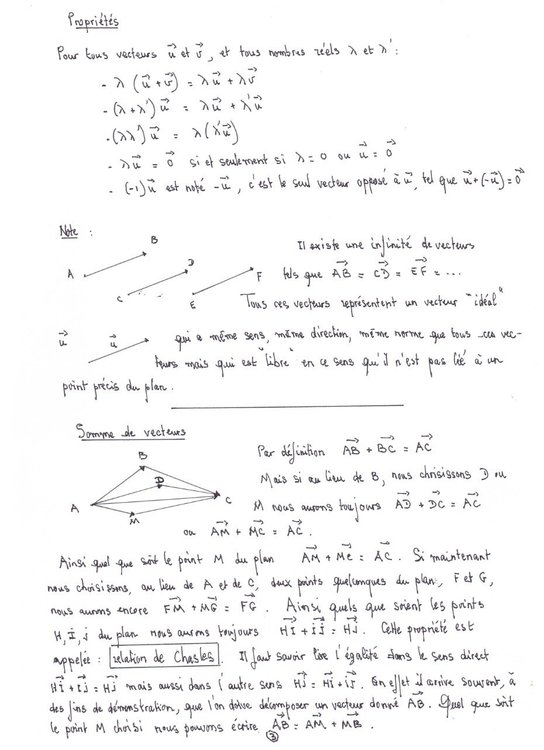 Propriétés
Pour tous vecteurs u⃗ et v⃗, et tous nombres réels λ et λ' :
- λ (u⃗ + v⃗) = λu⃗ + λv⃗
- (λ + λ') u⃗ = λu⃗ + λ'u⃗
- (λλ') u⃗ = λ(λ'u⃗)
- λu⃗ = 0⃗ si et seulement si λ = 0 ou u⃗ = 0⃗
- (-1)u⃗ est noté -u⃗, c'est le seul vecteur opposé à u⃗, tel que u⃗+(-u⃗)=0⃗
Note :
A B C D E F
Il existe une infinité de vecteurs
tels que AB⃗ = CD⃗ = EF⃗ = ...
Tous ces vecteurs représentent un vecteur "idéal"
u⃗ u⃗ qui a même sens, même direction, même norme que tous ces vec-
teurs mais qui est "libre" en ce sens qu'il n'est pas lié à un
point précis du plan.
Somme de vecteurs
A B D C M
Par définition AB⃗ + BC⃗ = AC⃗
Mais si au lieu de B, nous choisissons D ou
M nous aurons toujours AD⃗ + DC⃗ = AC⃗
ou AM⃗ + MC⃗ = AC⃗.
Ainsi quel que soit le point M du plan AM⃗ + MC⃗ = AC⃗. Si maintenant
nous choisissons, au lieu de A et de C, deux points quelconques du plan, F et G,
nous aurons encore FM⃗ + MG⃗ = FG⃗. Ainsi quels que soient les points
H, I, J du plan nous aurons toujours HI⃗ + IJ⃗ = HJ⃗. Cette propriété est
appelée : relation de Chasles. Il faut savoir lire l'égalité dans le sens direct
HI⃗ + IJ⃗ = HJ⃗ mais aussi dans l'autre sens HJ⃗ = HI⃗ + IJ⃗. En effet il arrive souvent, à
des fins de démonstration, que l'on doive décomposer un vecteur donné AB⃗. Quel que soit
le point M choisi nous pouvons écrire AB⃗ = AM⃗ + MB⃗.